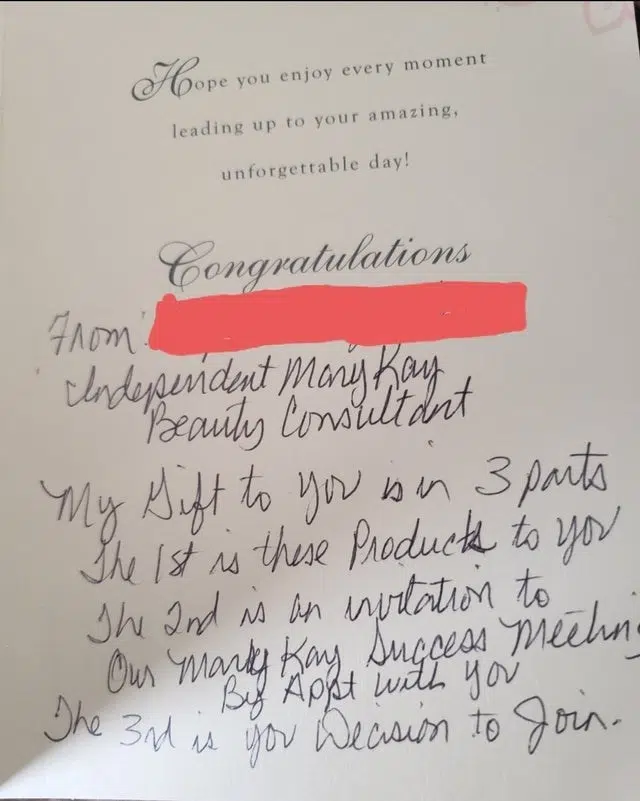 Hope you enjoy every moment
leading up to your amazing,
unforgettable day!
Congratulations
From:
Independent Mary Kay
Beauty Consultant
My Gift to you is in 3 parts
The 1st is these Products to you
The 2nd is an invitation to
Our Mary Kay Success Meeting
By Appt with you
The 3rd is you Decision to Join.